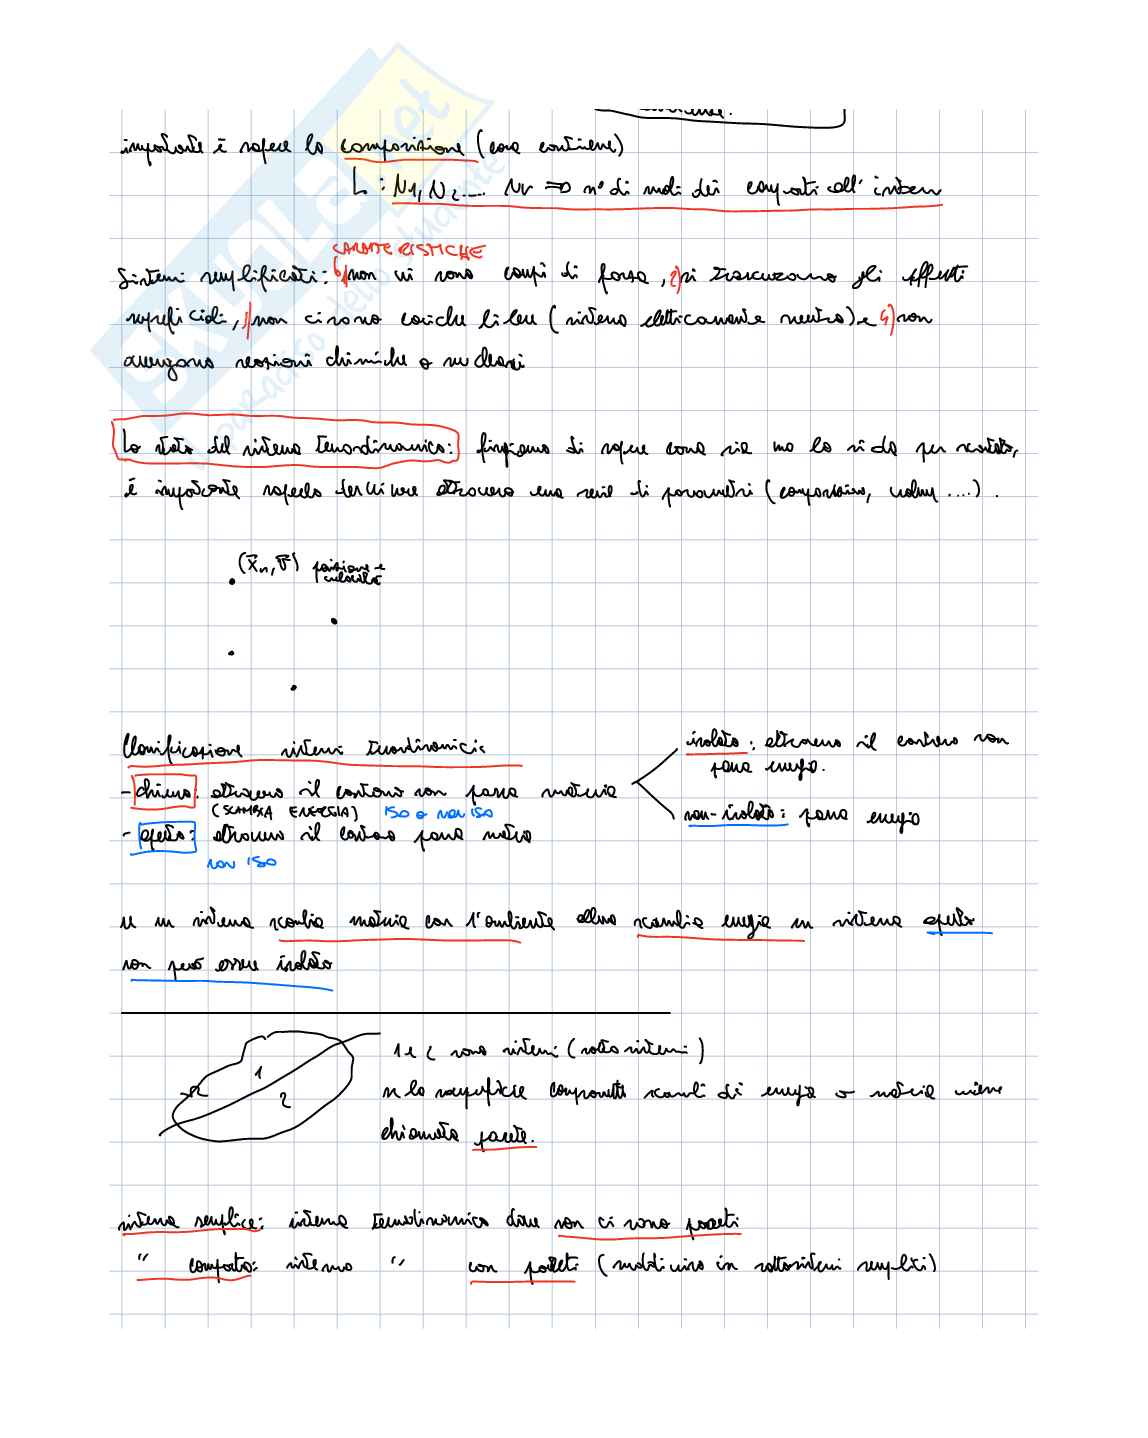 importante è sapere la composizione (cosa contiene)
L : N1, N2.... Nr => n° di moli dei composti all' interno
CARATTERISTICHE
Sistemi semplificati: 1) non vi sono campi di forza, 2) si trascurano gli effetti
superficiali, 3) non ci sono cariche libere (sistema elettricamente neutro) e 4) non
avvengono reazioni chimiche o nucleari
Lo stato del sistema termodinamico: fingiamo di sapere cosa sia ma lo si da per scontato,
è importante saperlo descrivere attraverso una serie di parametri (composizione, volume ....).
(x⃗n, v⃗) posizione e
velocità
Classificazione sistemi termodinamici:
isolato: attraverso il contorno non
passa energia.
- chiuso: attraverso il contorno non passa materia
(SCAMBIA ENERGIA) ISO o non ISO
non-isolato: passa energia
- aperto: attraverso il contorno passa materia
non ISO
se un sistema scambia materia con l'ambiente allora scambia energia un sistema aperto
non può essere isolato
1 e 2 sono sistemi (sottosistemi)
1
2
se la superficie componette scambi di energia o materia viene
chiamata parete.
sistema semplice: sistema termodinamico dove non ci sono pareti
" composto: sistema " con pareti (suddiviso in sottosistemi semplici)
skuola.net
paradiso dello studente